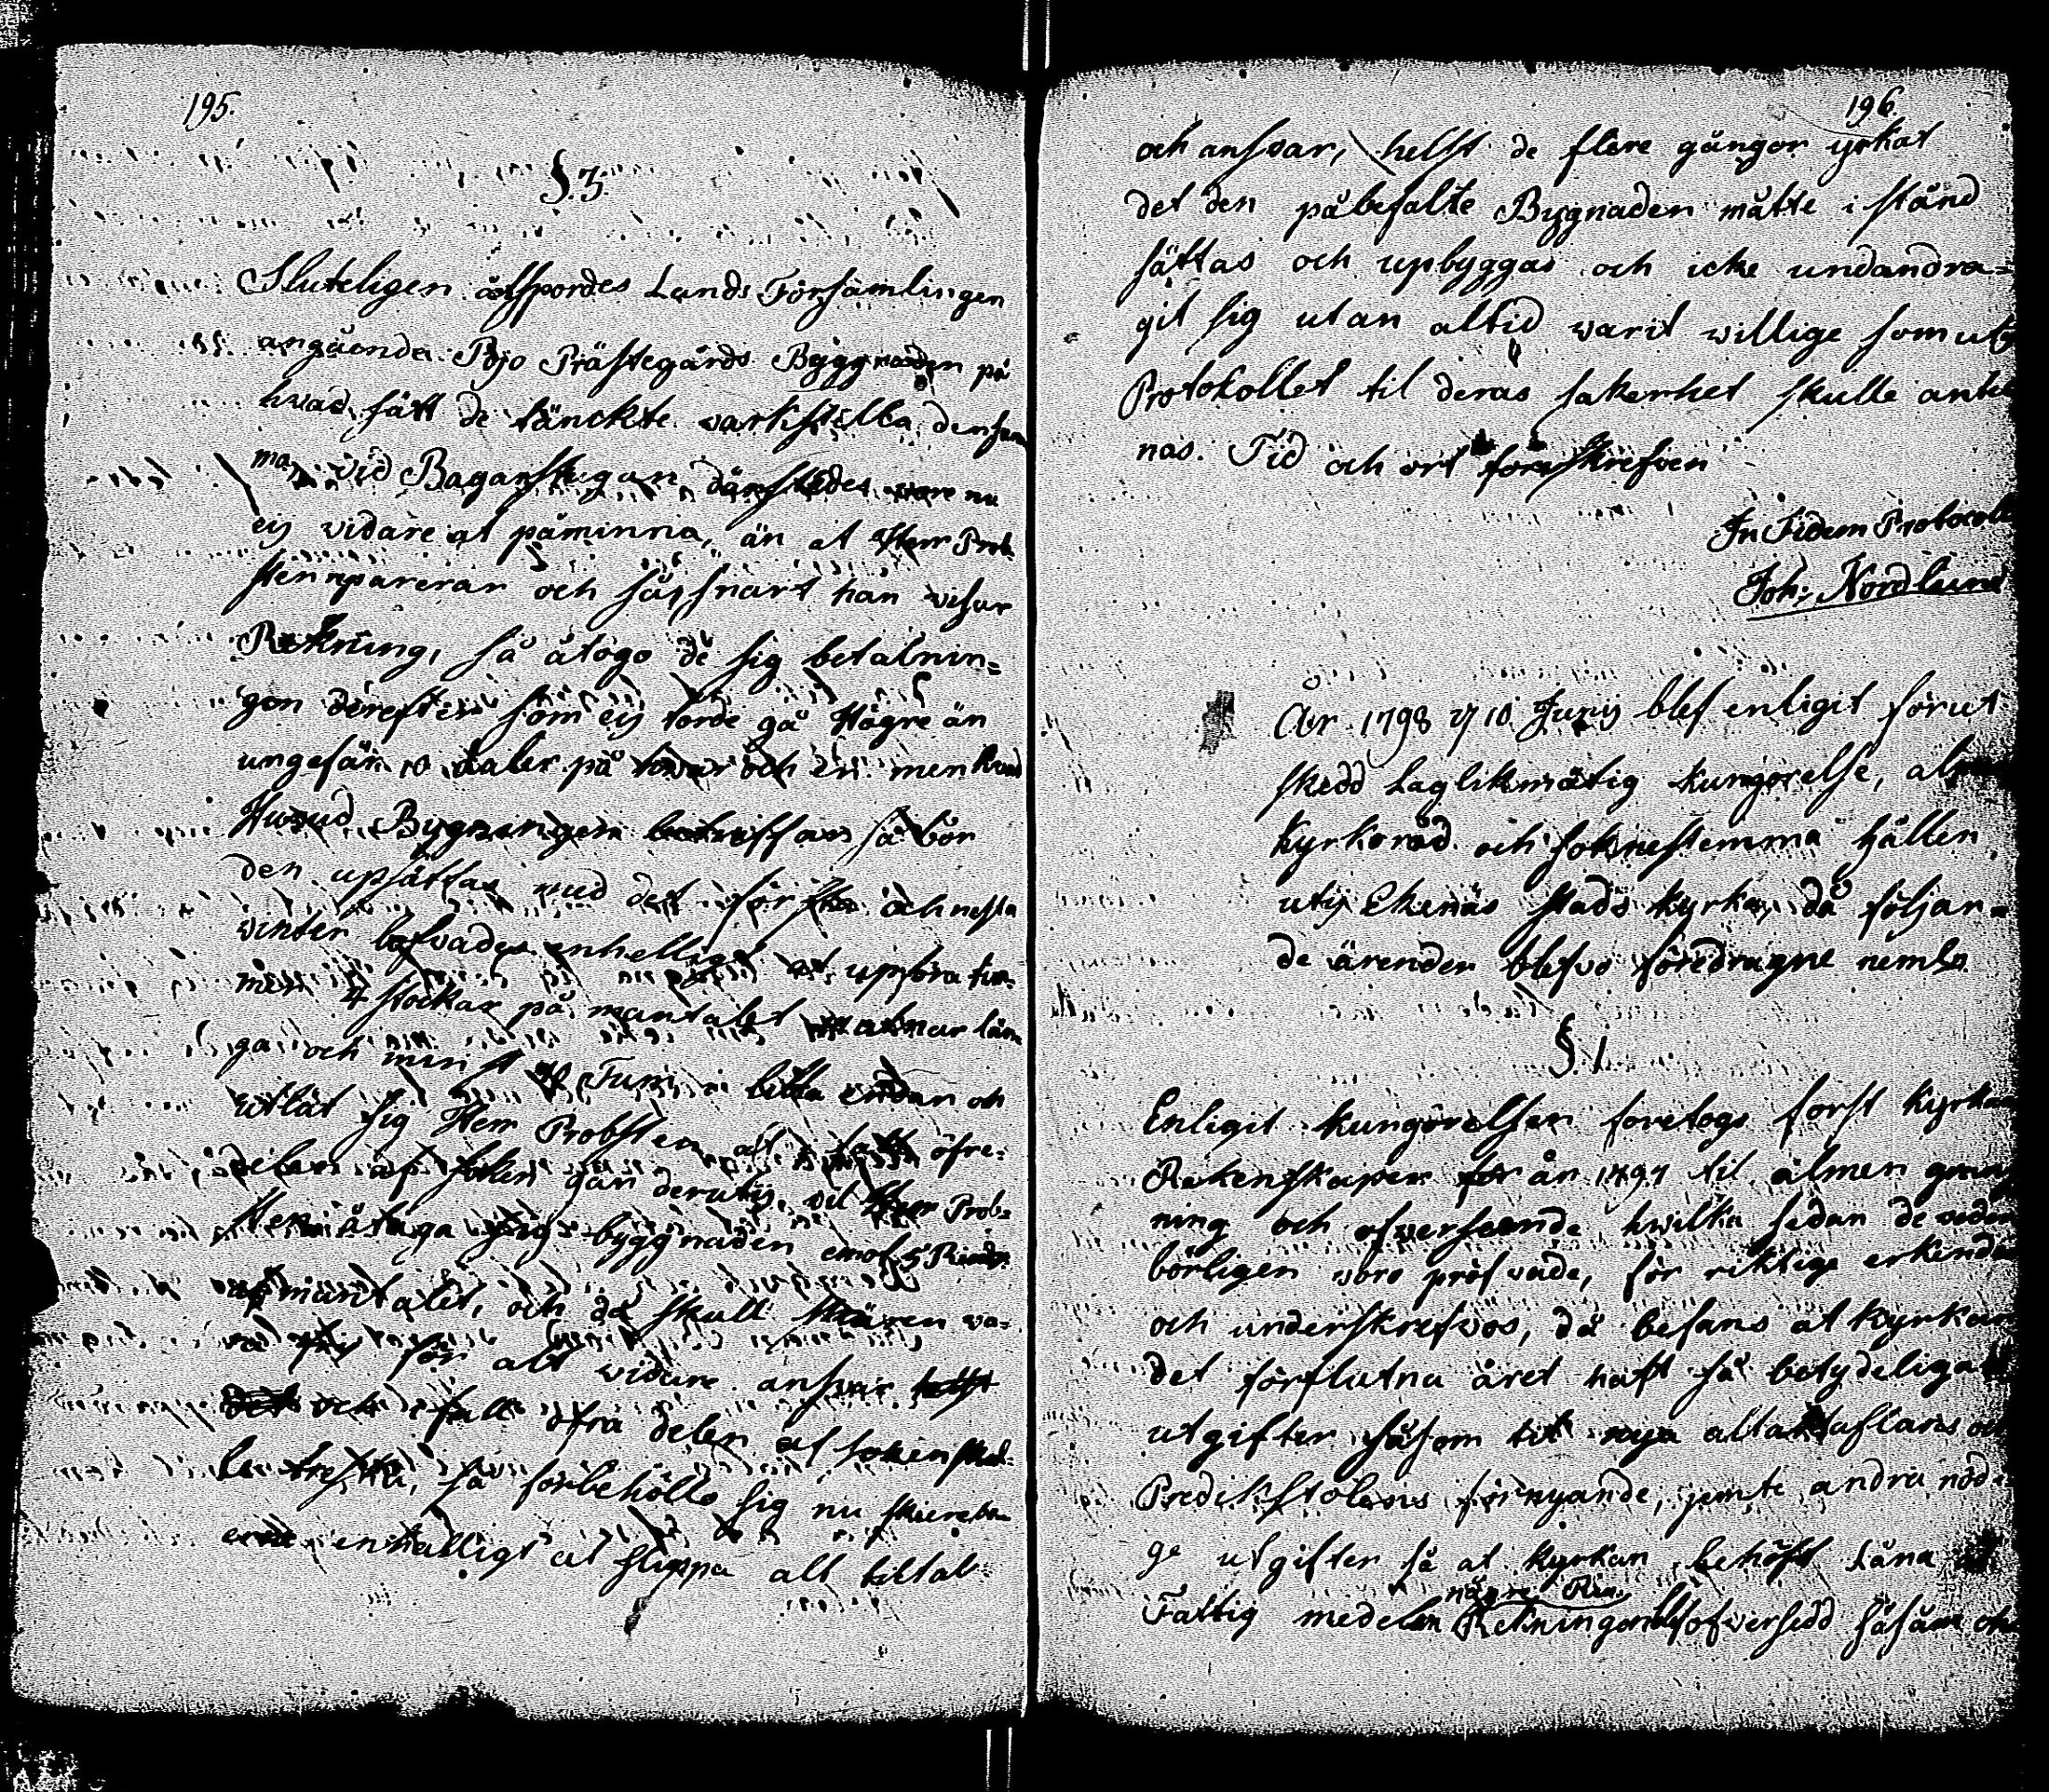 195.
§. 3.
Sluteligen åtspordes Lands Församlingen
angående Pojo Prästegårds Byggnaden på
hvad sätt de tänckte varkställa densam
ma, vid Bagarstugan därstädes vore nu
eij vidare at påminna, än at Herr Prob
sten reparerar och så snart han visar
Räkning, så åtogo de sig betalnin=
gen derefter som eij torde gå högre än
ungefär 10 daler på men hvad
Huvud Bygningen beträffar så bör
den upsättas med det första och nästa
vinter lofvades enhelligt at upföra tim-
mer 4 stockar på mantalet alnar lån
ga och minst Tum i lilla ändan och
utlät sig Herr Probsten at öfre=
delen af sokn gån derutij, vil Herr Prob=
sten åtaga sig byggnaden emot 5 Riksdr
af mantalet, och då skull Härren va=
ra för alt vidare ansvar
och ifall öfra delen af soknen skul=
le tresta, så förbehölls sig nu
enhälligt at slippa all betal=
196
och ansvar, helst de flere gångor yrkat
det den påbefalte Bygnaden måtte i stånd
sättas och upbyggas och icke undandra=
git sig utan altid varit willige som uti
Protokollet til deras säkerhet skulle antek
nas. Tid och ort förrskrefven
In Fidem Protocolli
Joh: Nordlund
År 1798 d 10 Junij blef enligit förut
skedd Laglikmätig kungörelse, al
Kyrkoråd och soknestemma hållen
utij Ekenäs stads kyrka, då följan=
de ärender blefvo föredragne neml:
§. 1.
Enligit kungörelsen foretogs först Kyrkan
Räkenskaper för år 1797 til almen gransk
ning och öfverseende hvilka sedan de veder
börligen voro pröfvade, för riktiga erkända
och underskrefvos, då befans at kyrkan
det förflutna året haft så betydeliga
utgifter såsom til nya altartaflans och
Predikstolens förnyande, jemte andra nödi
ga utgifter så at kyrkan behöft låna af
Fattig medelen några Rdr. Räkningen blef öfversedd såsom